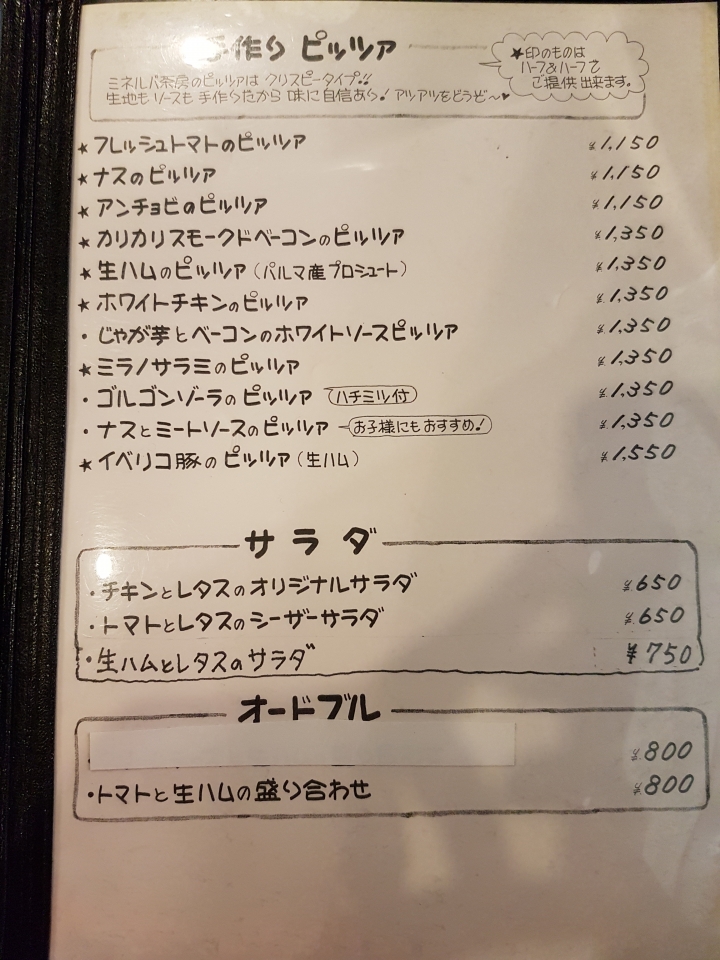 手作り ピッツァ
★印のものは
ハーフ&ハーフで
ご提供出来ます。
ミネルバ茶房のピッツァは クリスピータイプ!!
生地もソースも 手作りだから 味に自信あり! アツアツをどうぞ〜♥
★フレッシュトマトのピッツァ ¥1,150
★ナスのピッツァ ¥1,150
★アンチョビのピッツァ ¥1,150
★カリカリスモークドベーコンのピッツァ ¥1,350
★生ハムのピッツァ(パルマ産プロシュート) ¥1,350
★ホワイトチキンのピッツァ ¥1,350
・じゃが芋とベーコンのホワイトソースピッツァ ¥1,350
★ミラノサラミのピッツァ ¥1,350
・ゴルゴンゾーラのピッツァ ハチミツ付 ¥1,350
・ナスとミートソースのピッツァ お子様にもおすすめ! ¥1,350
★イベリコ豚のピッツァ(生ハム) ¥1,550
サラダ
・チキンとレタスのオリジナルサラダ ¥650
・トマトとレタスのシーザーサラダ ¥650
・生ハムとレタスのサラダ ¥750
オードブル
¥800
・トマトと生ハムの盛り合わせ ¥800